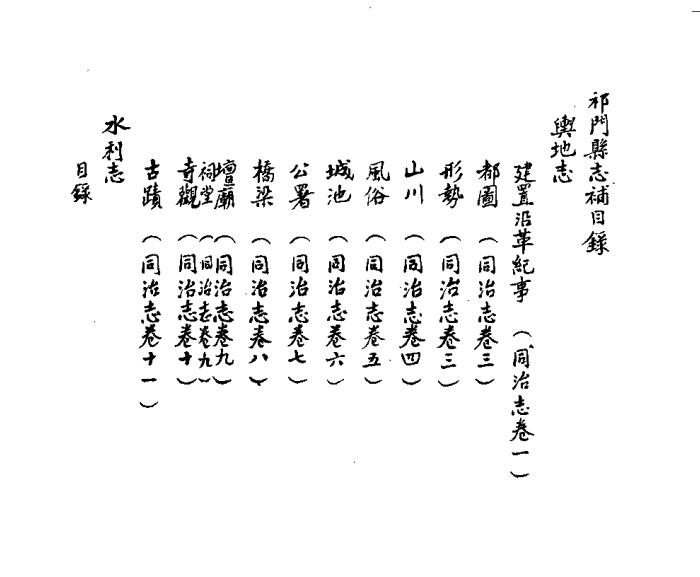 祁門縣志補目錄
輿地志
建置沿革紀事（同治志卷一）
都圖（同治志卷三）
形勢（同治志卷三）
山川（同治志卷四）
風俗（同治志卷五）
城池（同治志卷六）
公署（同治志卷七）
橋梁（同治志卷八）
壇廟（同治志卷九）
祠堂（同治志卷九）
寺觀（同治志卷十）
古蹟（同治志卷十一）
水利志
目錄